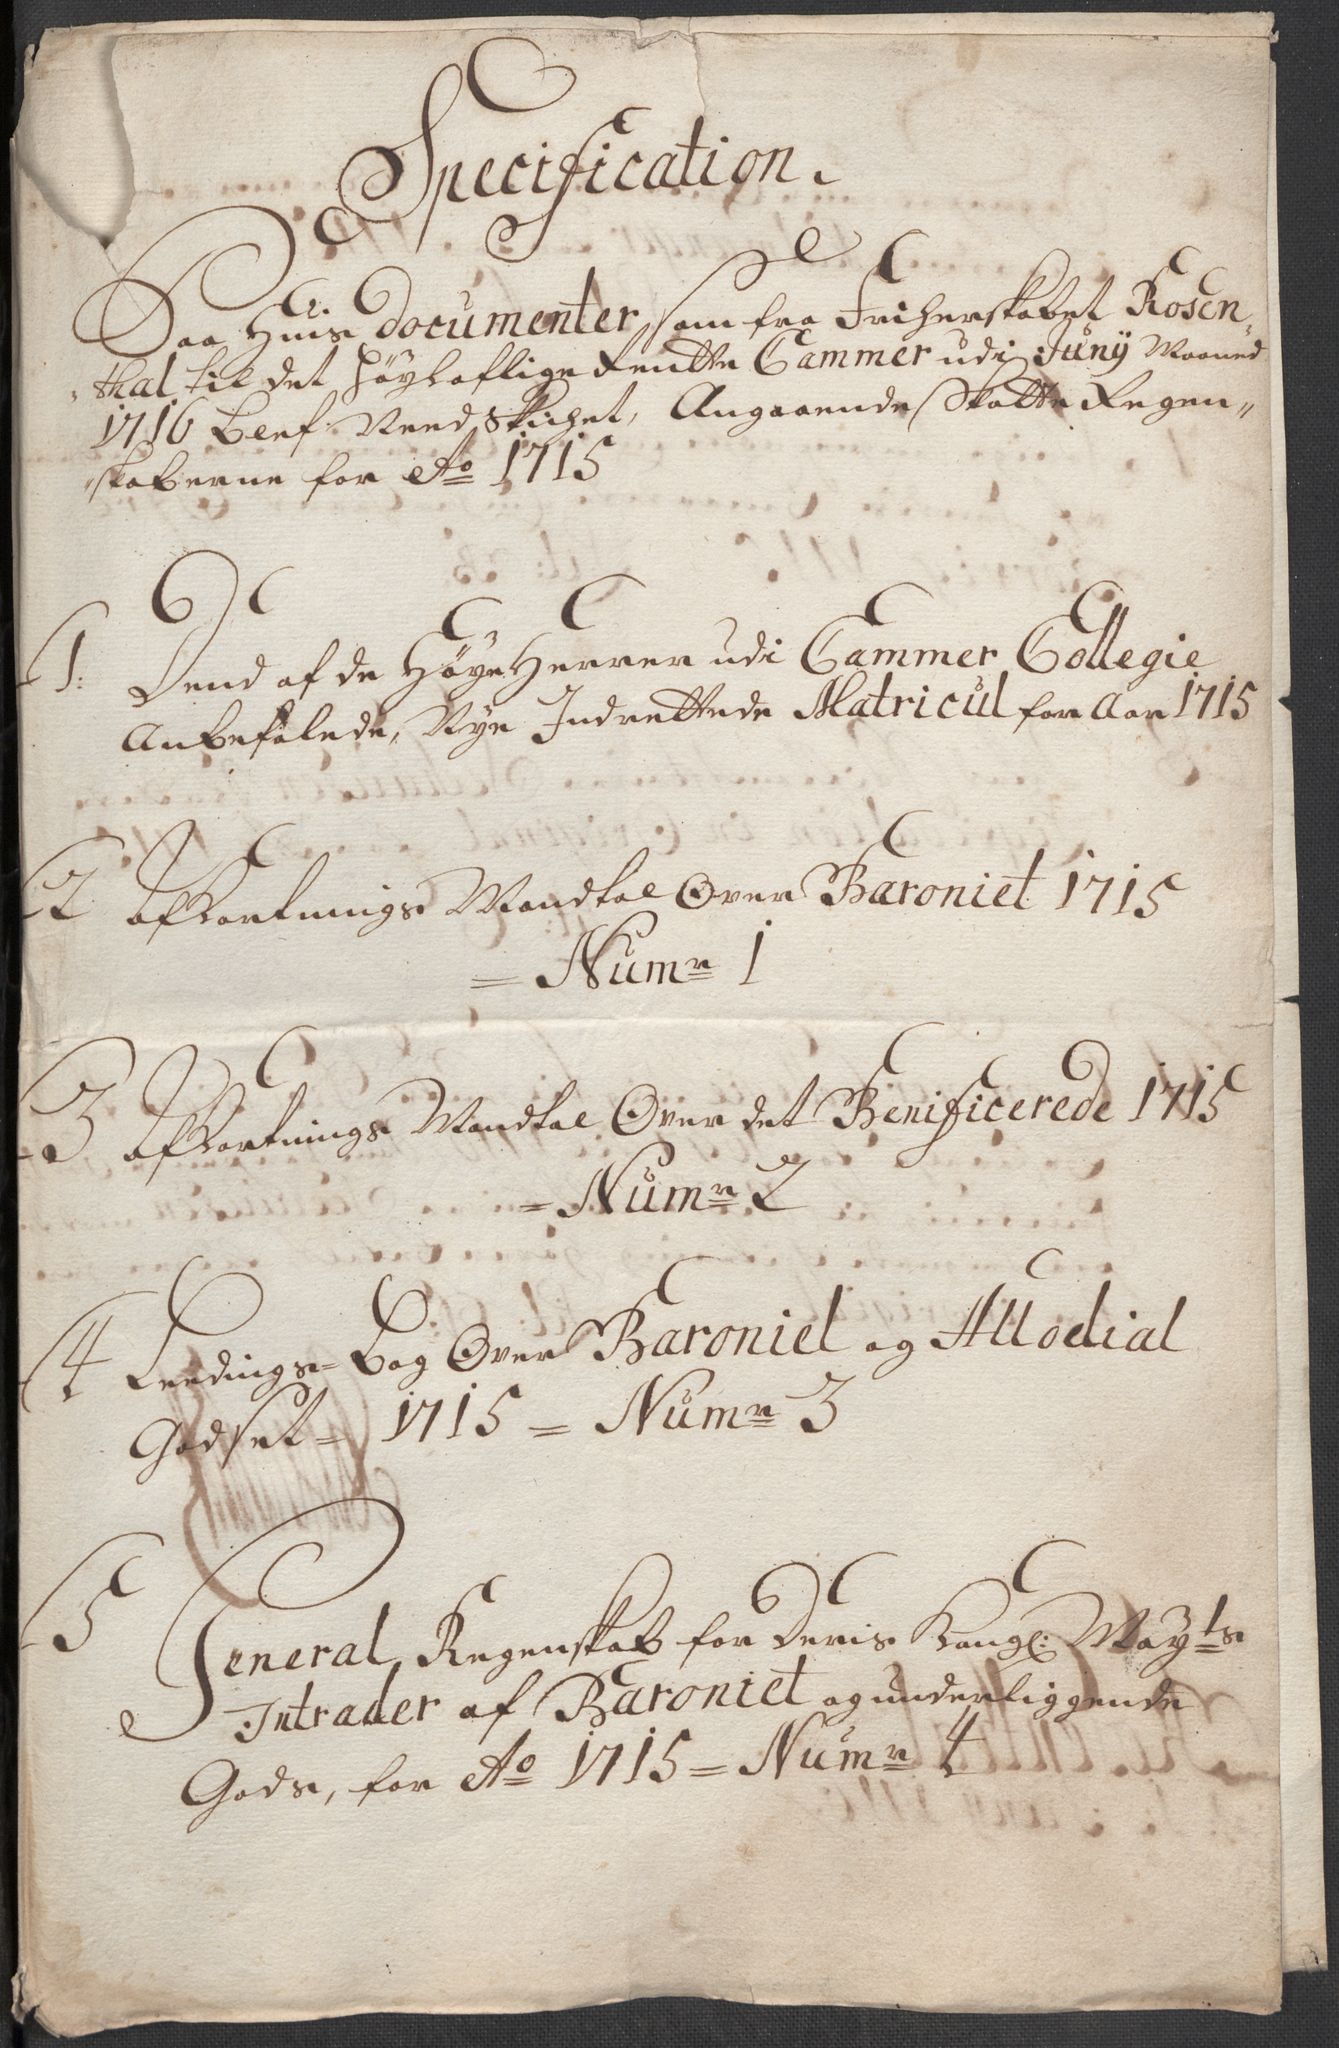 Specification.
Paa Huis documenter, som fra Friherskabet Rosen„
„thal til det höyloflige Rentte Cammer udi Junij Maaned
1716 blef Need Skichet, Angaaende Skatte Regen„
„skaberne for Ao 1715
1: Dend af de Höye Herrer udi Cammer Collegie
Anbefalede, Nye Indrettede Matricul for Aar 1715
2 Afkortnings Mandtal Over Baroniet 1715
= Numr 1
3 Afkortnings Mandtal Over det Benificerede 1715
= Numr 2
4 Leedings= Bog Over Baroniet og Allodial
Godset = 1715 = Numr 3
5 General Regenskab for Deris Kongl: Mayts
Intrader af Baroniet og underliggende
Gods, for Ao 1715 = Numr 4